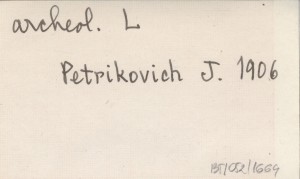 archeol. L
Petrikovich J. 1906
BT/052/1664